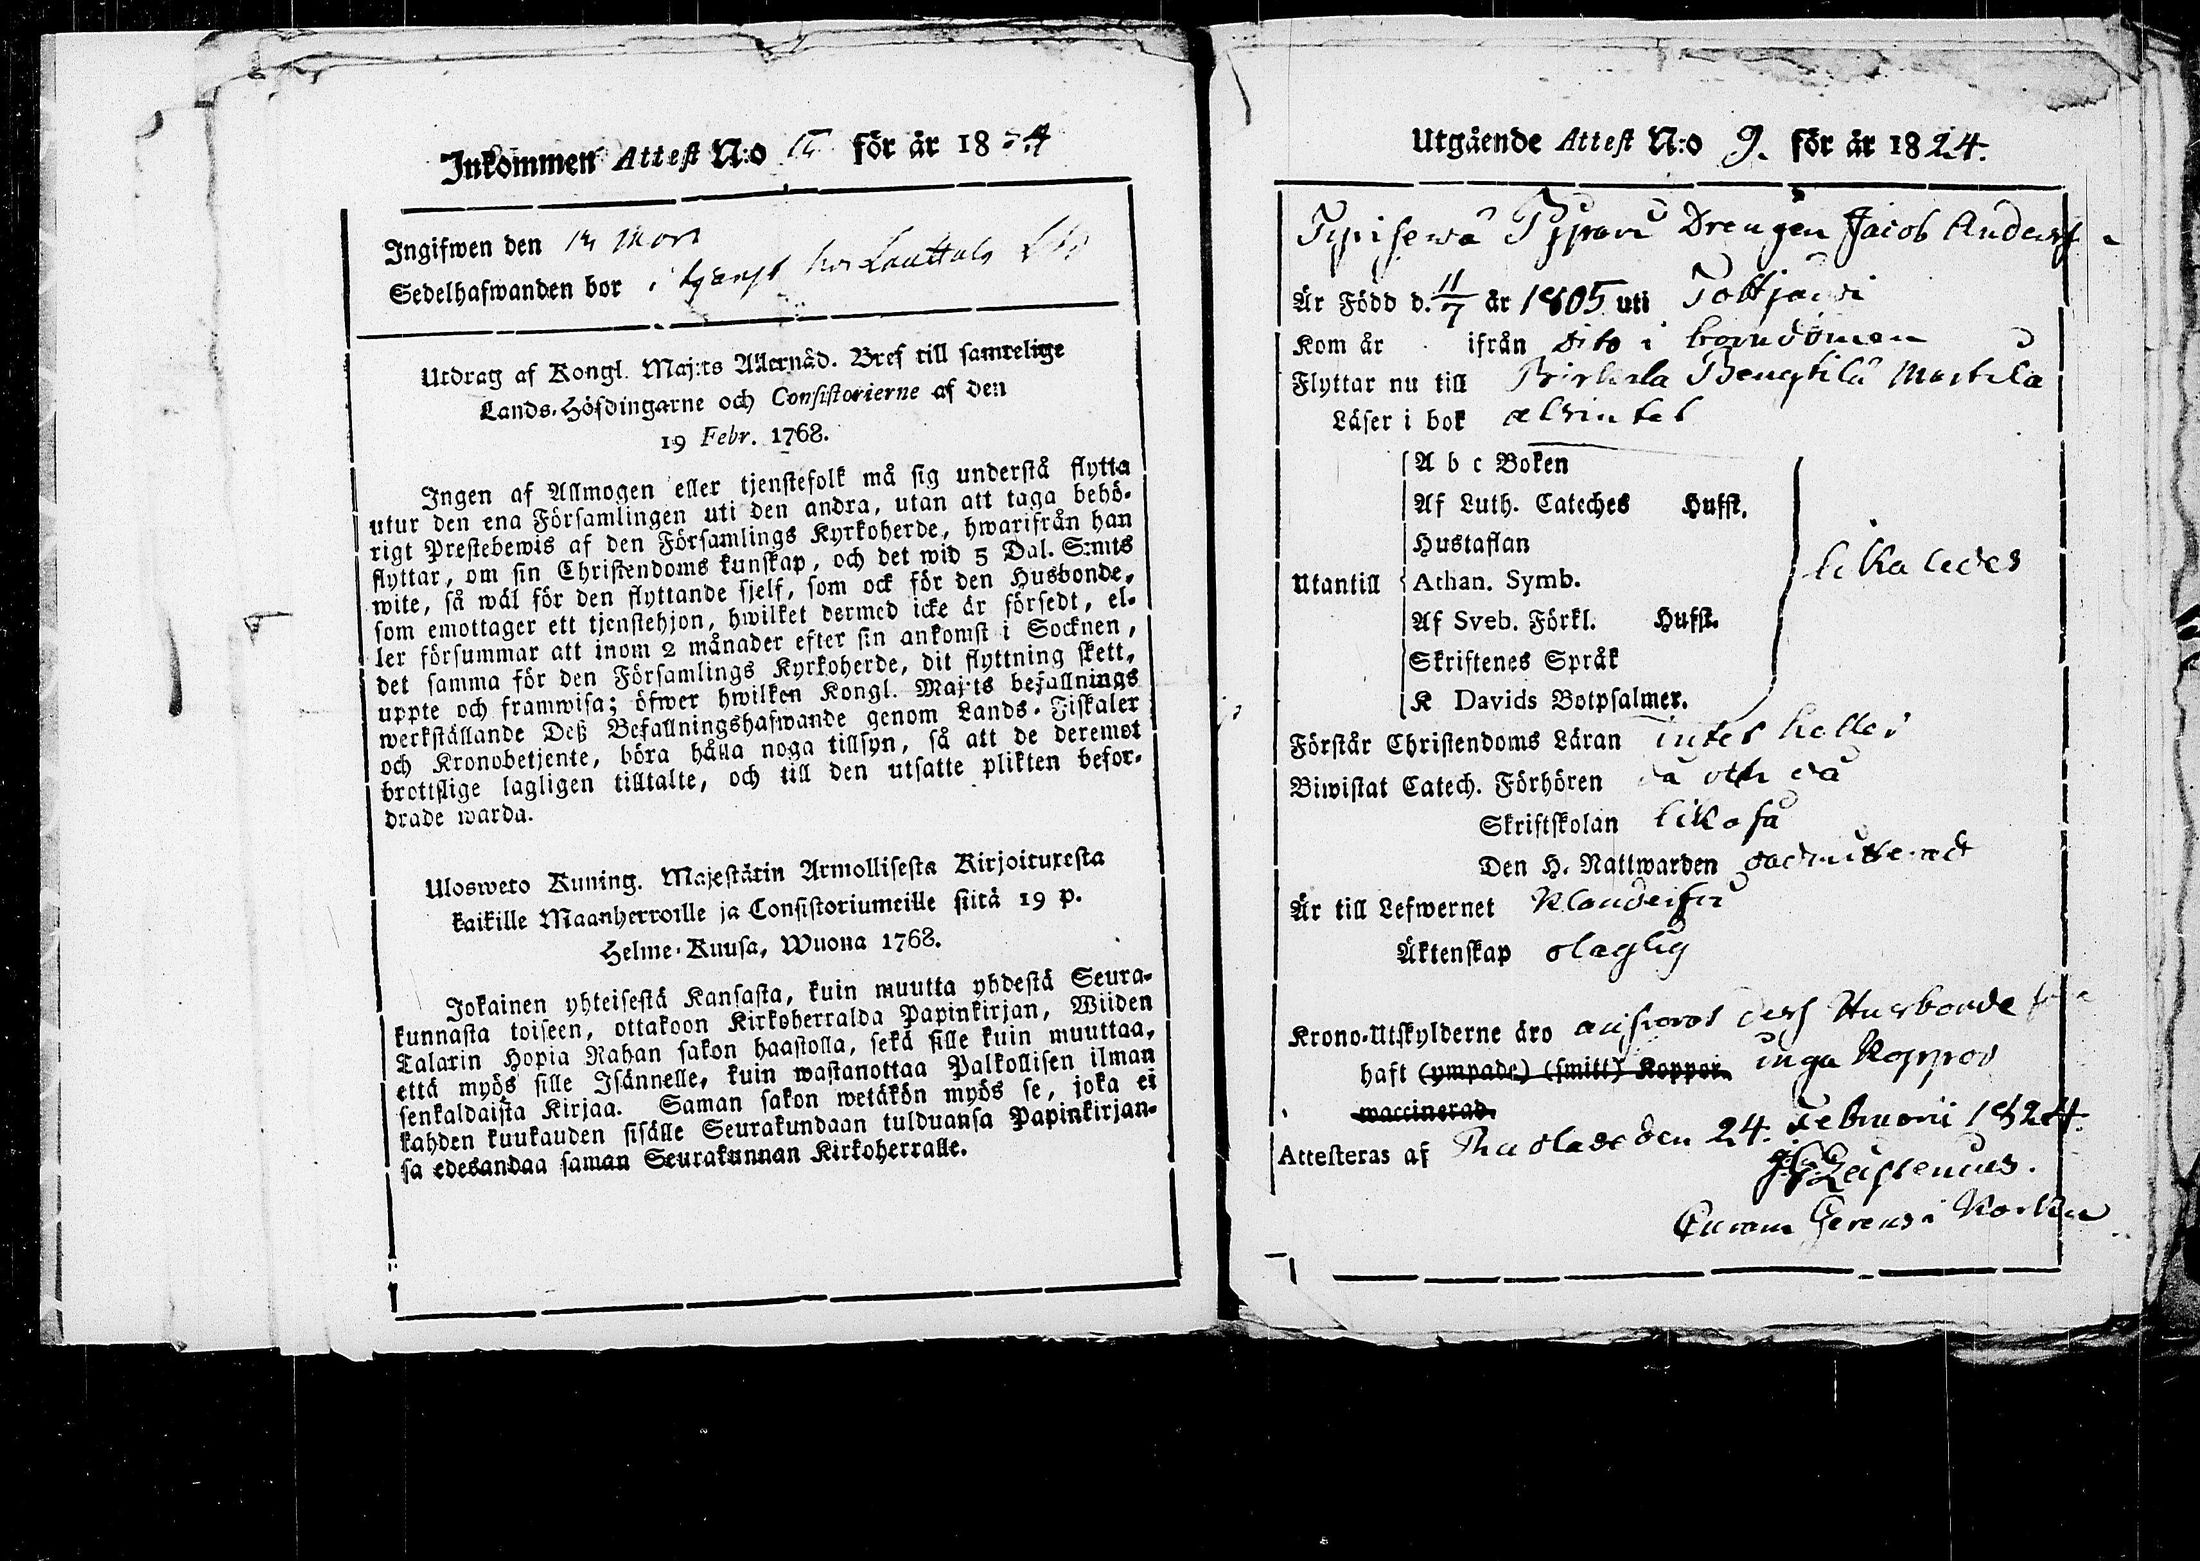 Inkommen Attest N:o för år 18 4
Ingifwen den 14 Mars
Sedelhafwanden bor i tjenst hos Lauttala
Utdrag af Kongl. Maj:ts Allernåd. Bref till samtelige
Lands-Höfdingarne och Consistorierne af den
19 Febr. 1768.
Ingen af Allmogen eller tjenstefolk må sig understå flytta
utur den ena Församlingen uti den andra, utan att taga behö-
rigt Prestebewis af den Församlings Kyrkoherde, hwarifrån han
flyttar, om sin Christendoms kunskap, och det wid 5 Dal. S:mts
wite, så wäl för den flyttande sjelf, som ock för den Husbonde,
som emottager ett tjenstehjon, hwilket dermed icke är försedt, el-
ler försummar att inom 2 månader efter sin ankomst i Socknen,
det samma för den Församlings Kyrkoherde, dit flyttning skett,
uppte och framwisa; öfwer hwilken Kongl. Maj:ts befallnings
werkställande Deß Befallningshafwande genom Lands-Fiskaler
och Kronobetjente, böra hålla noga tillsyn, så att de deremot
brottslige lagligen tilltalte, och till den utsatte plikten befor-
drade warda.
Ulosweto Kuning. Majestätin Armollisesta Kirjoituxesta
kaikille Maanherroille ja Consistoriumeille siitä 19 p.
Helme-Kuusa, Wuona 1768.
Jokainen yhteisestä Kansasta, kuin muutta yhdestä Seura-
kunnasta toiseen, ottakoon Kirkoherralda Papinkirjan, Wiiden
Talarin Hopia Rahan sakon haastolla, sekä sille kuin muuttaa,
että myös sille Isännelle, kuin wastanottaa Palkollisen ilman
senkaldaista Kirjaa. Saman sakon wetäkön myös se, joka ei
kahden kuukauden sisälle Seurakundaan tulduansa Papinkirjan-
sa edesandaa saman Seurakunnan Kirkoherralle.
Utgående Attest N:o 9. för år 1824.
Drengen Jacob Anders
Är Född d. 11/7 år 1805 uti Tottjärvi
Kom år ifrån dito i barndomen
Flyttar nu till Birkala Bengtilä Mattila
Läser i bok alsintet
A b c Boken
Af Luth. Cateches Hufst.
Hustaflan
Utantill Athan. Symb. likaledes
Af Sveb. Förkl. Hufst.
Skriftenes Språk
K Davids Botpsalmer.
Förstår Christendoms Läran intet heller
Biwistat Catech. Förhören då och då
Skriftskolan likaså
Den H. Nattwarden oadmitterad
Är till Lefwernet klanderfri
Äktenskap olaglig
Krono-Utskylderne äro answarar dess Husbonde före
haft (ympade) (smitt) Koppor. inga Koppor
waccinerad.
Attesteras af den 24. Februarii 1824.